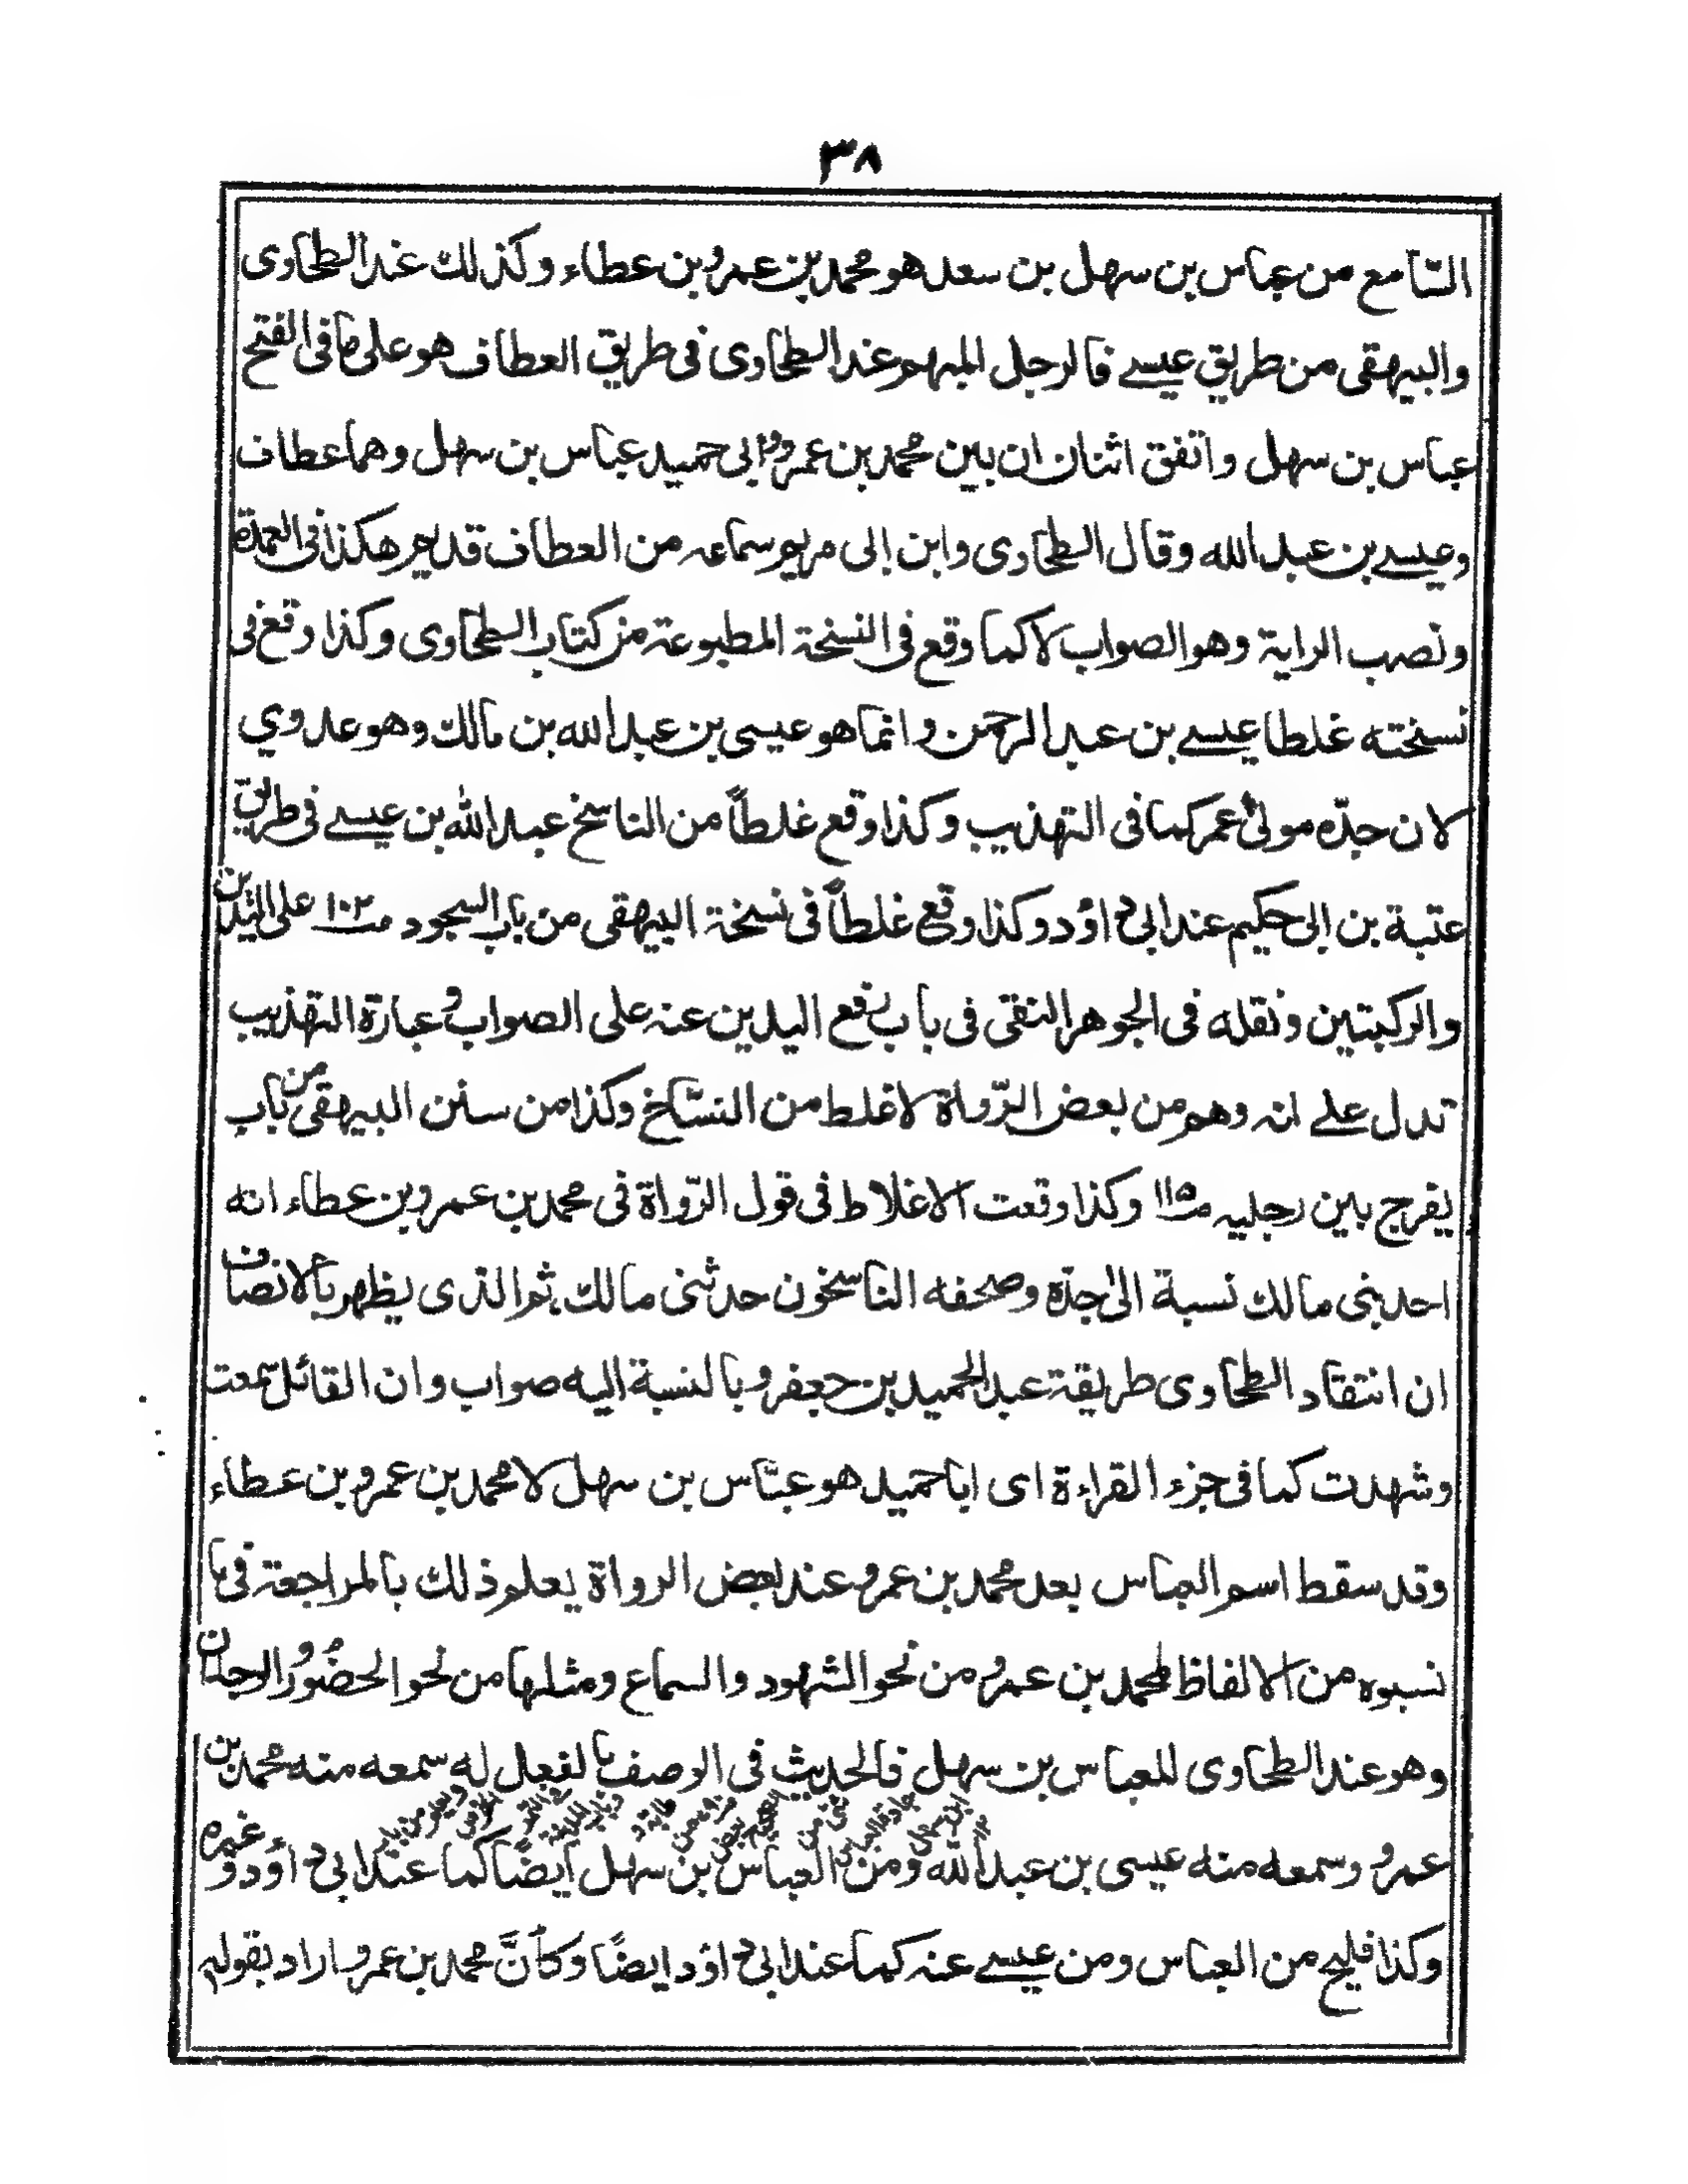 ٣٨
السّامع من عباس بن سهل بن سعد هو محمد بن عمرو بن عطاء وكذلك عند الطحاوى
والبيهقى من طريق عيسے فالرجل المبهم عند الطحاوى فى طريق العطاف هو على ما فى الفتح
عباس بن سهل واتفق اثنان ان بين محمد بن عمرو وابى حميد عباس بن سهل وهما عطاف
وعيسے بن عبد الله وقال الطحاوى وابن ابى مريم سماعه من العطاف قديم هكذا فى العمدة
ونصب الراية وهو الصواب لا كما وقع فى النسخة المطبوعة من كتاب الطحاوى وكذا وقع فى
نسخته غلطا عيسے بن عبد الرحمن وانما هو عيسى بن عبد الله بن مالك وهو عدوي
لان جدّه مولى عمر كما فى التهذيب وكذا وقع غلطاً من الناسخ عبد الله بن عيسے فى طريق
عتبة بن ابى حكيم عند ابى داؤد وكذا وقع غلطاً فى نسخة البيهقى من باب السجود صـ١٠٢ على اليدين
والركبتين ونقله فى الجوهر النقى فى باب رفع اليدين عنه على الصواب وعبارة التهذيب
تدل علے انه وهم من بعض الرّواة لا غلط من النسّاخ وكذا من سنن البيهقى من باب
يفرج بين رجليه صـ١١٥ وكذا وقعت الاغلاط فى قول الرّواة فى محمد بن عمرو بن عطاء انه
احد بنى مالك نسبة الى جدّه وصحفه الناسخون حدثنى مالك، ثم الذى يظهر بالانصاف
ان انتقاد الطحاوى طريقة عبد الحميد بن جعفر وبالنسبة اليه صواب وان القائل سمعت
وشهدت كما فى جزء القراءة اى ابا حميد هو عبّاس بن سهل لا محمد بن عمرو بن عطاء
وقد سقط اسم العباس بعد محمد بن عمرو عند بعض الرواة يعلم ذلك بالمراجعة فى ما
نسبوه من الالفاظ لمحمد بن عمرو من نحو الشهود والسماع ومثلها من نحو الحضور والوجدان
وهو عند الطحاوى للعباس بن سهل فالحديث فى الوصف بالفعل له سمعه منه محمد بن
عمرو وسمعه منه عيسى بن عبد الله ومن العباس بن سهل ايضًا كما عند ابى داؤد وغيره
وكذا فليح من العباس ومن عيسے عنه كما عند ابى داؤد ايضًا وكأنَّ محمد بن عمرو اراد بقوله